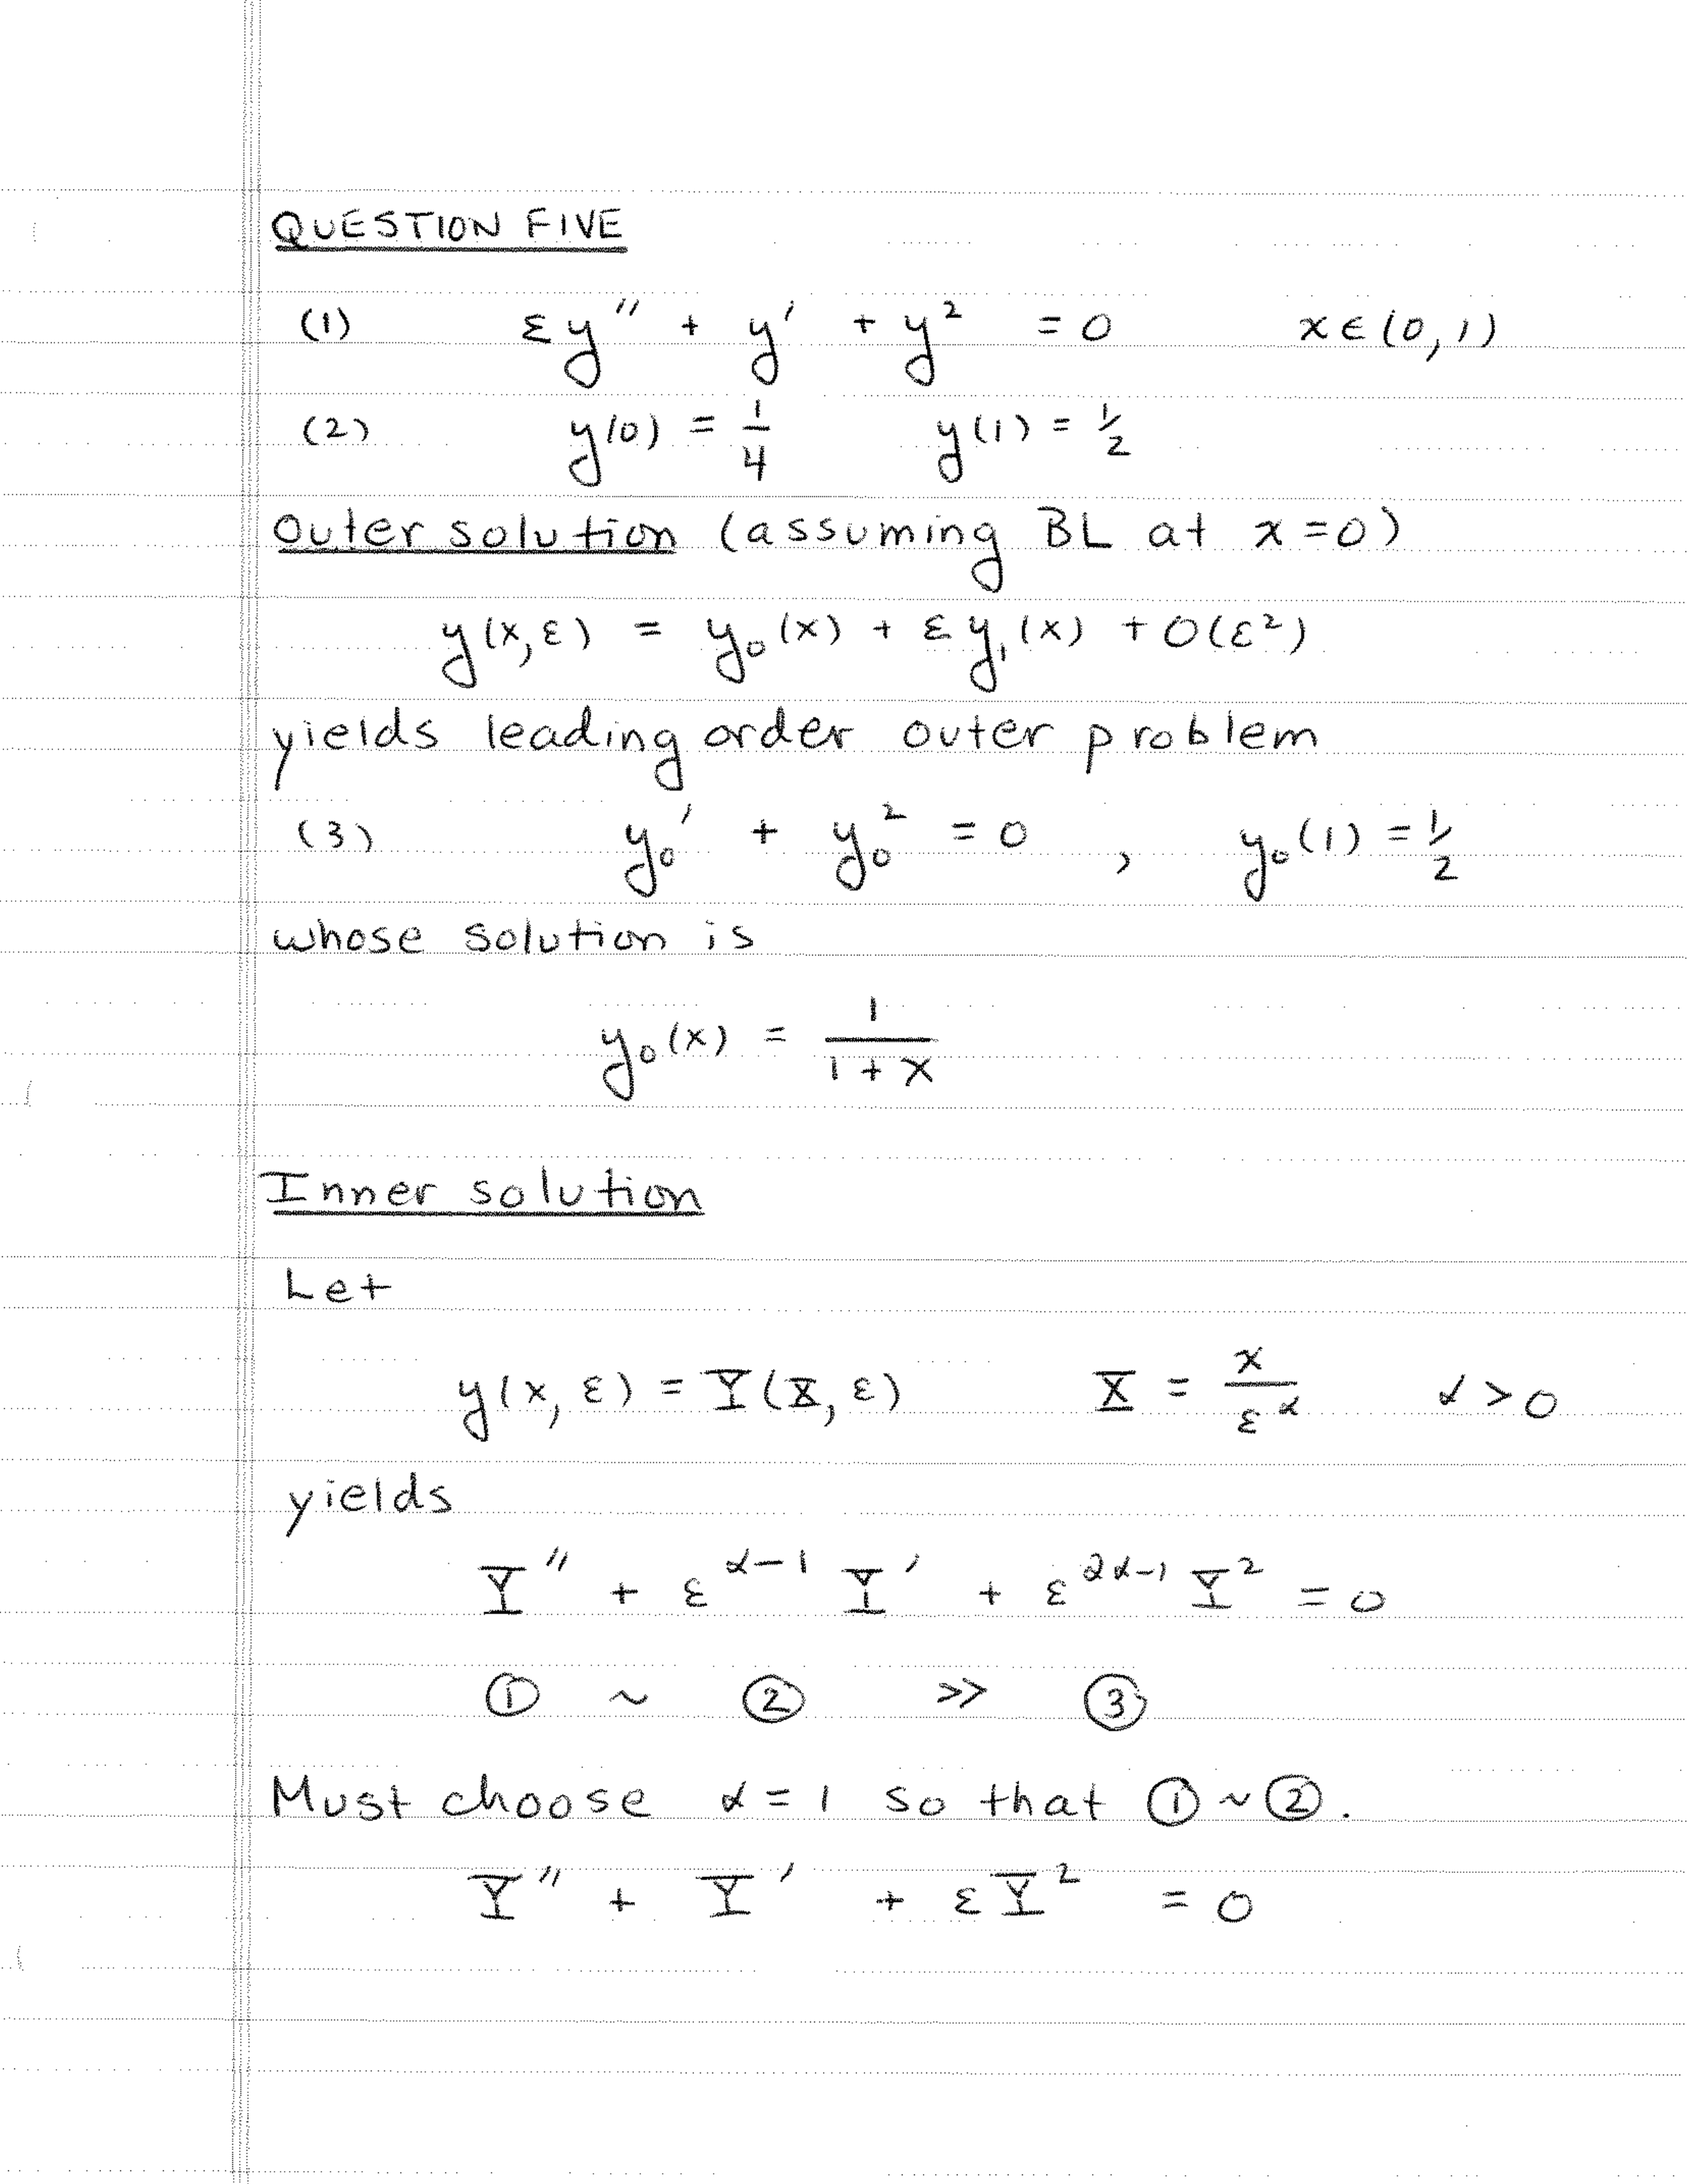 QUESTION FIVE
(1) εy'' + y' + y² = 0 x ∈ (0,1)
(2) y(0) = 1/4 y(1) = 1/2
Outer solution (assuming BL at x=0)
y(x,ε) = y₀(x) + εy₁(x) + O(ε²)
yields leading order outer problem
(3) y₀' + y₀² = 0 , y₀(1) = 1/2
whose solution is
y₀(x) = 1/(1+x)
Inner solution
Let
y(x,ε) = Y(X,ε) X = x/ε^α α > 0
yields
Y'' + ε^(α-1) Y' + ε^(2α-1) Y² = 0
① ~ ② >> ③
Must choose α = 1 so that ① ~ ②.
Y'' + Y' + εY² = 0